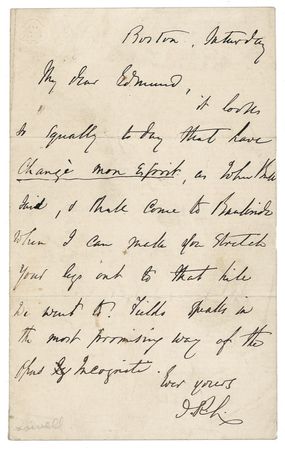 Boston, Saturday
My dear Edmund,
it looks
so squally to day that I have
changé mon Esprit, as John Bull
said, & shall come to
when I can make you stretch
your legs out to that hill
we went to. Fields speaks in
the most promising way of the
Opus Incognito.
Ever yours